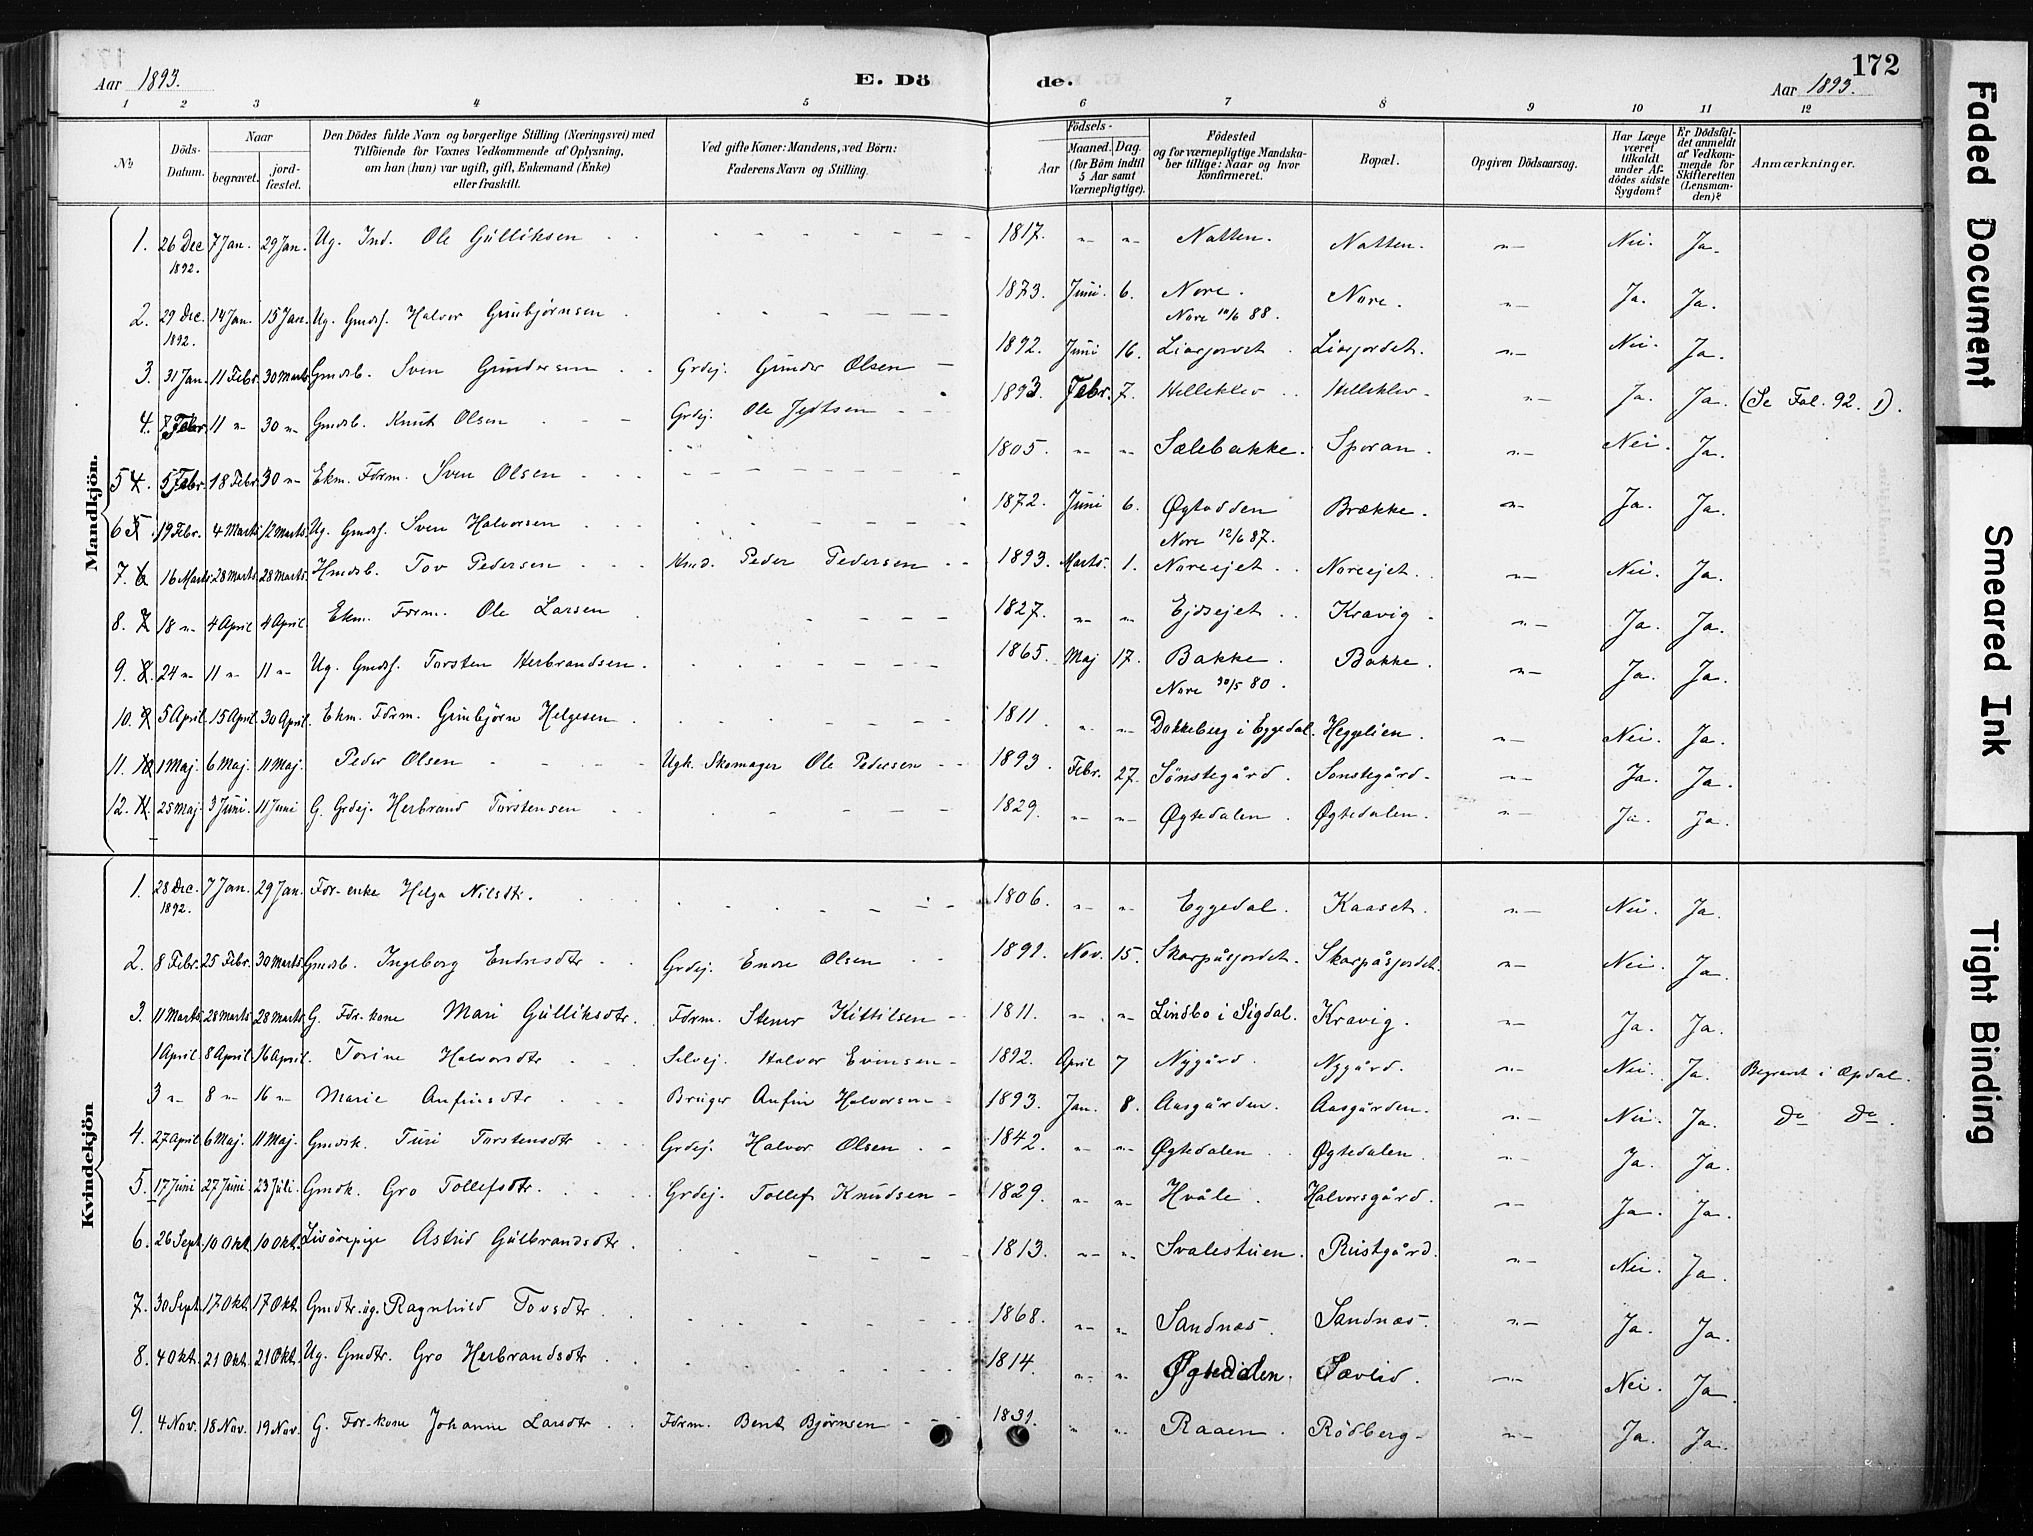 172
Aar 1893. E. Dö de. Aar 1893.
1 2 3 4 5 6 7 8 9 10 11 12
No
Döds-Datum.
Naar
begravet.
jord-fæstet.
Den Dödes fulde Navn og borgerlige Stilling (Næringsvei) med
Tilföiende for Voxnes Vedkommende af Oplysning,
om han (hun) var ugift, gift, Enkemand (Enke)
eller fraskilt.
Ved gifte Koner: Mandens, ved Börn:
Faderens Navn og Stilling.
Födsels-
Aar
Maaned. Dag.
(for Börn indtil
5 Aar samt
Værnepligtige).
Födested
og for værnepligtige Mandska-
ber tillige: Naar og hvor
konfirmeret.
Bopæl.
Opgiven Dödsaarsag.
Har Læge
været
tilkaldt
under Af-
dödes sidste
Sygdom?
Er Dödsfal-
det anmeldt
af Vedkom-
mende for
Skifteretten
(Lensman-
den)?
Anmærkninger.
Mandkjön.
1. 26 Dec 1892. 7 Jan. 29 Jan. Ug. Ind. Ole Gulliksen 1817. "- "- Natten. Natten. "- Nei. Ja.
2. 29 Dec. 1892. 14 Jan. 15 Jan. Ug. Gmds. Halvor Grimbjørnsen 1873. Juni. 6. Nore. Nore 10/6 88. Nore. "- Ja. Ja.
3. 31 Jan. 11 Febr. 30 Marts Gmdsb. Sven Gundersen Grdej. Gunder Olsen 1892. Juni 16. Liasjordet. Liasjordet. "- Nei. Ja.
4. 7 Febr. 11 "- 30 "- Gmdsb. Knut Olsen Grdej. Ole 1893 Febr. 7. Helleklev Helleklev "- Ja. Ja. (Se Fol. 92. 1).
5 4. 5 Febr. 18 Febr. 30 "- Ekm. Fdrm. Sven Olsen 1805. "- "- Sælebakke. Sporan. "- Nei. Ja.
6 5. 19 Febr. 4 Marts 12 Marts. Ug. Gmds. Sven Halvorsen 1872. Juni 6. Øgtodden Nore 12/6 87. Brække. "- Ja. Ja.
7. 6 16 Marts 28 Marts 28 Marts. Hmdsb. Tov Pedersen Hmd. Peder Pedersen 1893. Marts. 1. Noreejet. Noreejet. "- Nei. Ja.
8. 7 18 "- 4 April 4 April Ekm. Fdrm. Ole Larsen 1827. "- "- Ejdsejet. Kravig. "- Ja. Ja.
9. 8. 24 "- 11 "- 11 "- Ug. Gmds. Torsten Herbrandsen. 1865. Maj 17. Bakke. Nore 30/5 80. Bakke. "- Ja. Ja.
10. 9 5 April. 15 April. 30 April. Ekm. Fdrm. Grimbjörn Helgesen 1811. "- "- Dokkeberg i Eggedal. Heggelien. "- Nei. Ja.
11. 10 1 Maj. 6 Maj. 11 Maj. Peder Olsen Ugk. Skomager Ole Pedersen 1893. Febr. 27. Sönstegård. Sonstegård. "- Ja. Ja.
12. 11. 25 Maj. 3 Juni. 11 Juni G. Grdej. Herbrand Torstensen 1829. "- "- Øgtedalen. Øgtedalen. "- Ja. Ja.
Kvindekjön
1. 28 Dec. 1892. 7 Jan. 29 Jan. Fdr-enke Helga Nilsdtr. 1806. "- "- Eggedal. Kaaset. "- Nei. Ja.
2. 8 Febr. 25 Febr. 30 Marts. Gmdsb. Ingeborg Endresdtr Grdej. Endre Olsen 1891. Nov. 15. Skarpåsjordet. Skarpåsjordet. "- Nei. Ja.
3. 11 Marts. 28 Marts 28 Marts. G. Fdr-kone Mari Gulliksdtr. Fdrm. Stener Kittilsen 1811. "- "- Lindbo i Sigdal. Kravig. "- Ja. Ja.
1 April. 8 April. 16 April. Torine Halvorsdtr Selvej. Halvor Evensen 1892. April 7 Nygård. Nygård. "- Nei. Ja. Begravet i Opdal.
3 "- 8 "- 16 "- Marie Anfinsdtr Bruger Anfin Halvorsen 1893. Jan. 8. Aasgården. Aasgården. "- Nei. Ja. Do Do.
4. 27 April 6 Maj. 11 Maj. Gmdsk. Turi Torstensdtr Grdej. Halvor Olsen 1842. "- "- Øgtedalen. Øgtedalen. "- Ja. Ja.
5. 17 Juni 27 Juni 23 Juli. Gmdk. Gro Tollefsdtr. Grdej. Tollef Knudsen 1829. "- "- Hvåle. Halvorsgård. "- Ja. Ja.
6. 26 Sept. 10 Okt. 10 Okt. Livörepige Astrid Gulbrandsdtr. 1813. "- "- Svalestuen. Rustgård. "- Nei. Ja.
7. 30 Sept. 17 Okt. 17 Okt. Gmdtr. ug. Ragnhild Tovsdtr 1868. "- "- Sandnæs. Sandnæs. "- Ja. Ja.
8. 4 Okt. 21 Okt. 21 Okt. Ug. Gmdtr. Gro Herbrandsdtr 1814. "- "- Øgtedalen. Sævlid. "- Nei. Ja
9. 4 Nov. 18 Nov. 19 Nov. G. Fdr-kone Johanne Larsdtr Fdrm. Bent Bjørnsen 1831. " "- Raaen. Rödberg "- Ja. Ja.
Faded Document
Smeared Ink
Tight Binding